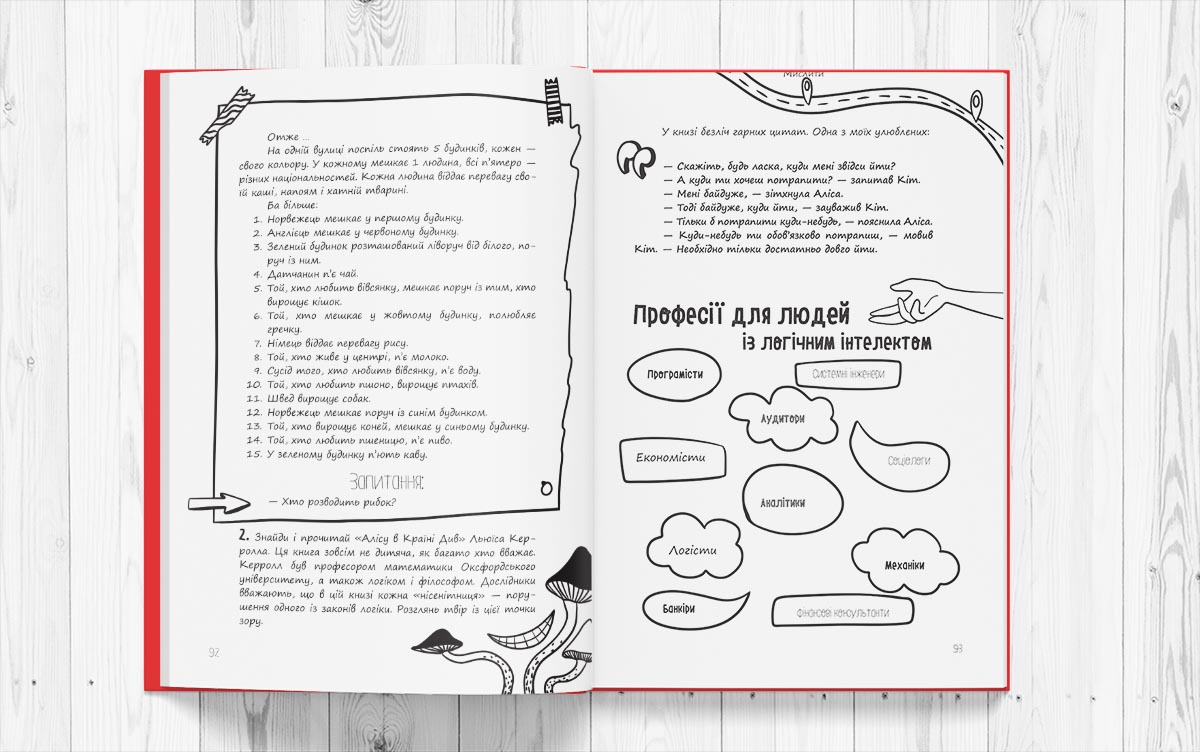 Отже ...
На одній вулиці поспіль стоять 5 будинків, кожен —
свого кольору. У кожному мешкає 1 людина, всі п'ятеро —
різних національностей. Кожна людина віддає перевагу сво-
їй каші, напоям і хатній тварині.
Ба більше:
1. Норвежець мешкає у першому будинку.
2. Англієць мешкає у червоному будинку.
3. Зелений будинок розташований ліворуч від білого, по-
руч із ним.
4. Датчанин п'є чай.
5. Той, хто любить вівсянку, мешкає поруч із тим, хто
вирощує кішок.
6. Той, хто мешкає у жовтому будинку, полюбляє
гречку.
7. Німець віддає перевагу рису.
8. Той, хто живе у центрі, п'є молоко.
9. Сусід того, хто любить вівсянку, п'є воду.
10. Той, хто любить пшоно, вирощує птахів.
11. Швед вирощує собак.
12. Норвежець мешкає поруч із синім будинком.
13. Той, хто вирощує коней, мешкає у синьому будинку.
14. Той, хто любить пшеницю, п'є пиво.
15. У зеленому будинку п'ють каву.
Запитання:
— Хто розводить рибок?
2. Знайди і прочитай «Алісу в Країні Див» Льюїса Кер-
ролла. Ця книга зовсім не дитяча, як багато хто вважає.
Керролл був професором математики Оксфордського
університету, а також логіком і філософом. Дослідники
вважають, що в цій книзі кожна «нісенітниця» — пору-
шення одного із законів логіки. Розглянь твір із цієї точки
зору.
92
Мислити
У книзі безліч гарних цитат. Одна з моїх улюблених:
— Скажіть, будь ласка, куди мені звідси йти?
— А куди ти хочеш потрапити? — запитав Кіт.
— Мені байдуже, — зітхнула Аліса.
— Тоді байдуже, куди йти, — зауважив Кіт.
— Тільки б потрапити куди-небудь, — пояснила Аліса.
— Куди-небудь ти обов'язково потрапиш, — мовив
Кіт. — Необхідно тільки достатньо довго йти.
Професії для людей
із логічним інтелектом
Програмісти
Системні інженери
Аудитори
Економісти
Соціологи
Аналітики
Логісти
Механіки
Банкіри
Фінансові консультанти
93